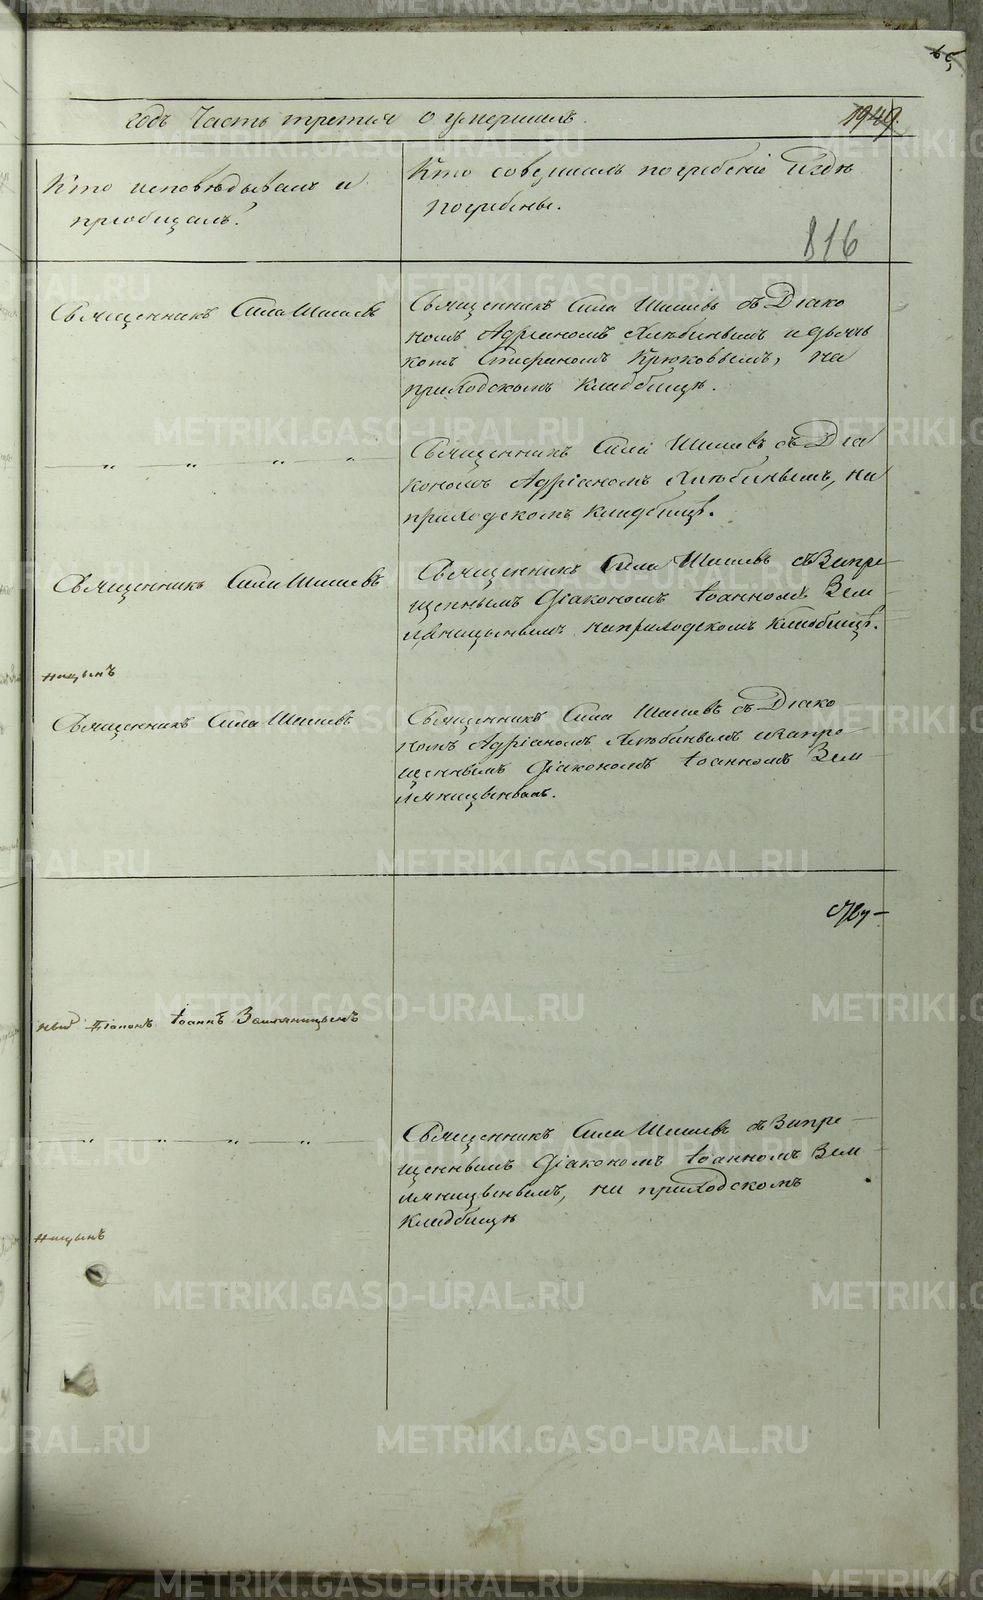 65
годъ Часть третія о умершихъ.
1949.
Кто исповѣдывалъ и
пріобщалъ?
Кто совершалъ погребеніе и гдѣ
погребены.
816
Священникъ Сила Шишевъ
Священникъ Сила Шишевъ съ Діако
номъ Адріаномъ Хлѣбинымъ и дьяч
комъ Стефаномъ Крюковымъ, на
приходскомъ кладбищѣ.
— „ — „ — „ — „ —
Священникъ Сила Шишевъ съ Діа
кономъ Адріаномъ Хлѣбинымъ, на
приходскомъ кладбищѣ.
Священникъ Сила Шишевъ
Священникъ Сила Шишевъ съ Запре
щеннымъ Діакономъ Іоанномъ Зем
ляницынымъ на приходскомъ кладбищѣ.
ницынъ
Священникъ Сила Шишевъ
Священникъ Сила Шишевъ съ Діако
номъ Адріаномъ Хлѣбинымъ и запре
щеннымъ Діакономъ Іоанномъ Зем
ляницынымъ.
ный Діаконъ Іоаннъ Земляницынъ
— „ — „ — „ — „ —
Священникъ Сила Шишевъ съ Запре
щеннымъ Діакономъ Іоанномъ Зем
ляницынымъ, на приходскомъ
кладбищѣ
ницынъ
METRIKI.GASO-URAL.RU